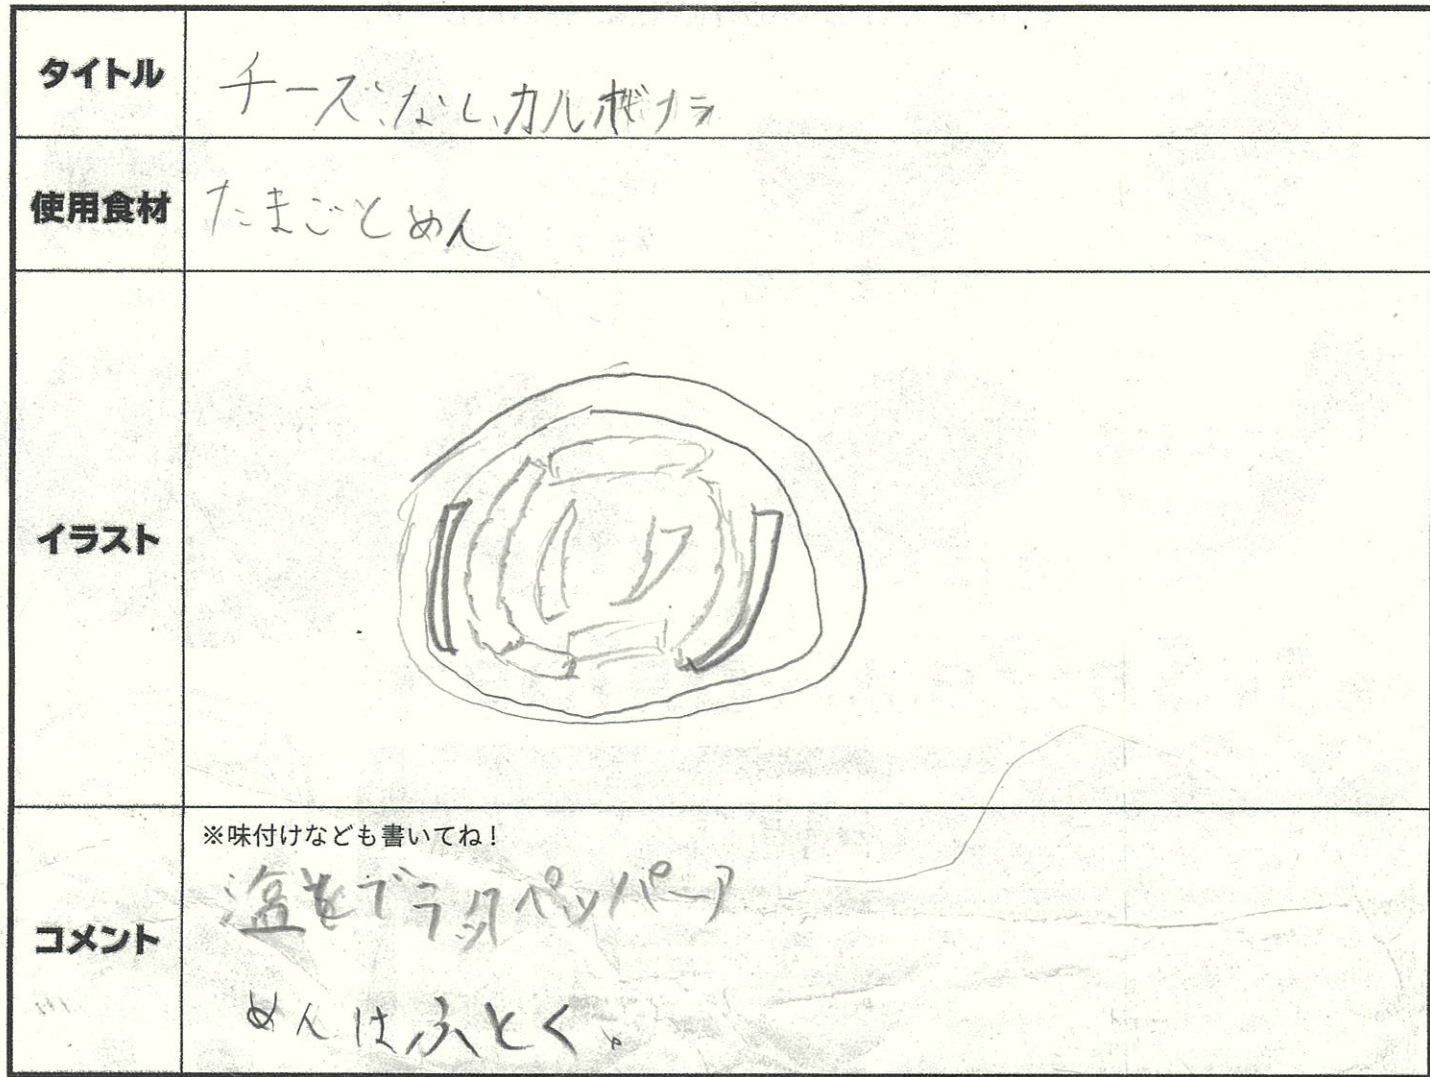 タイトル
チーズなしカルボナラ
使用食材
たまごとめん
イラスト
コメント
※味付けなども書いてね!
めんはふとく。